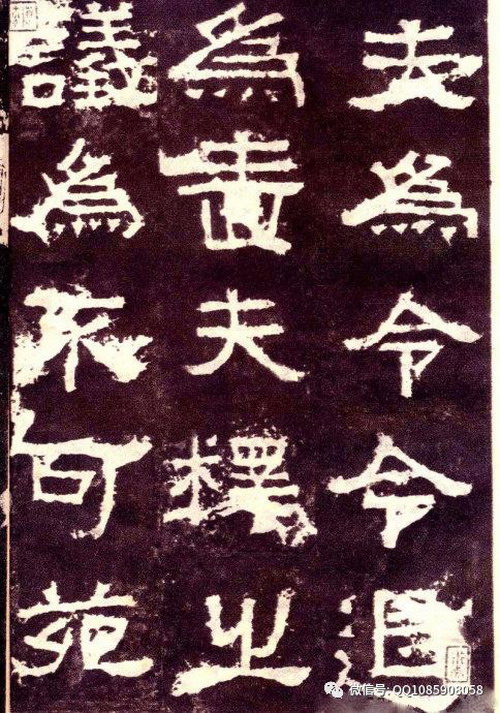 夫為令令退
為嗇夫釋之
議為不可苑
微信号:QQ1085908058